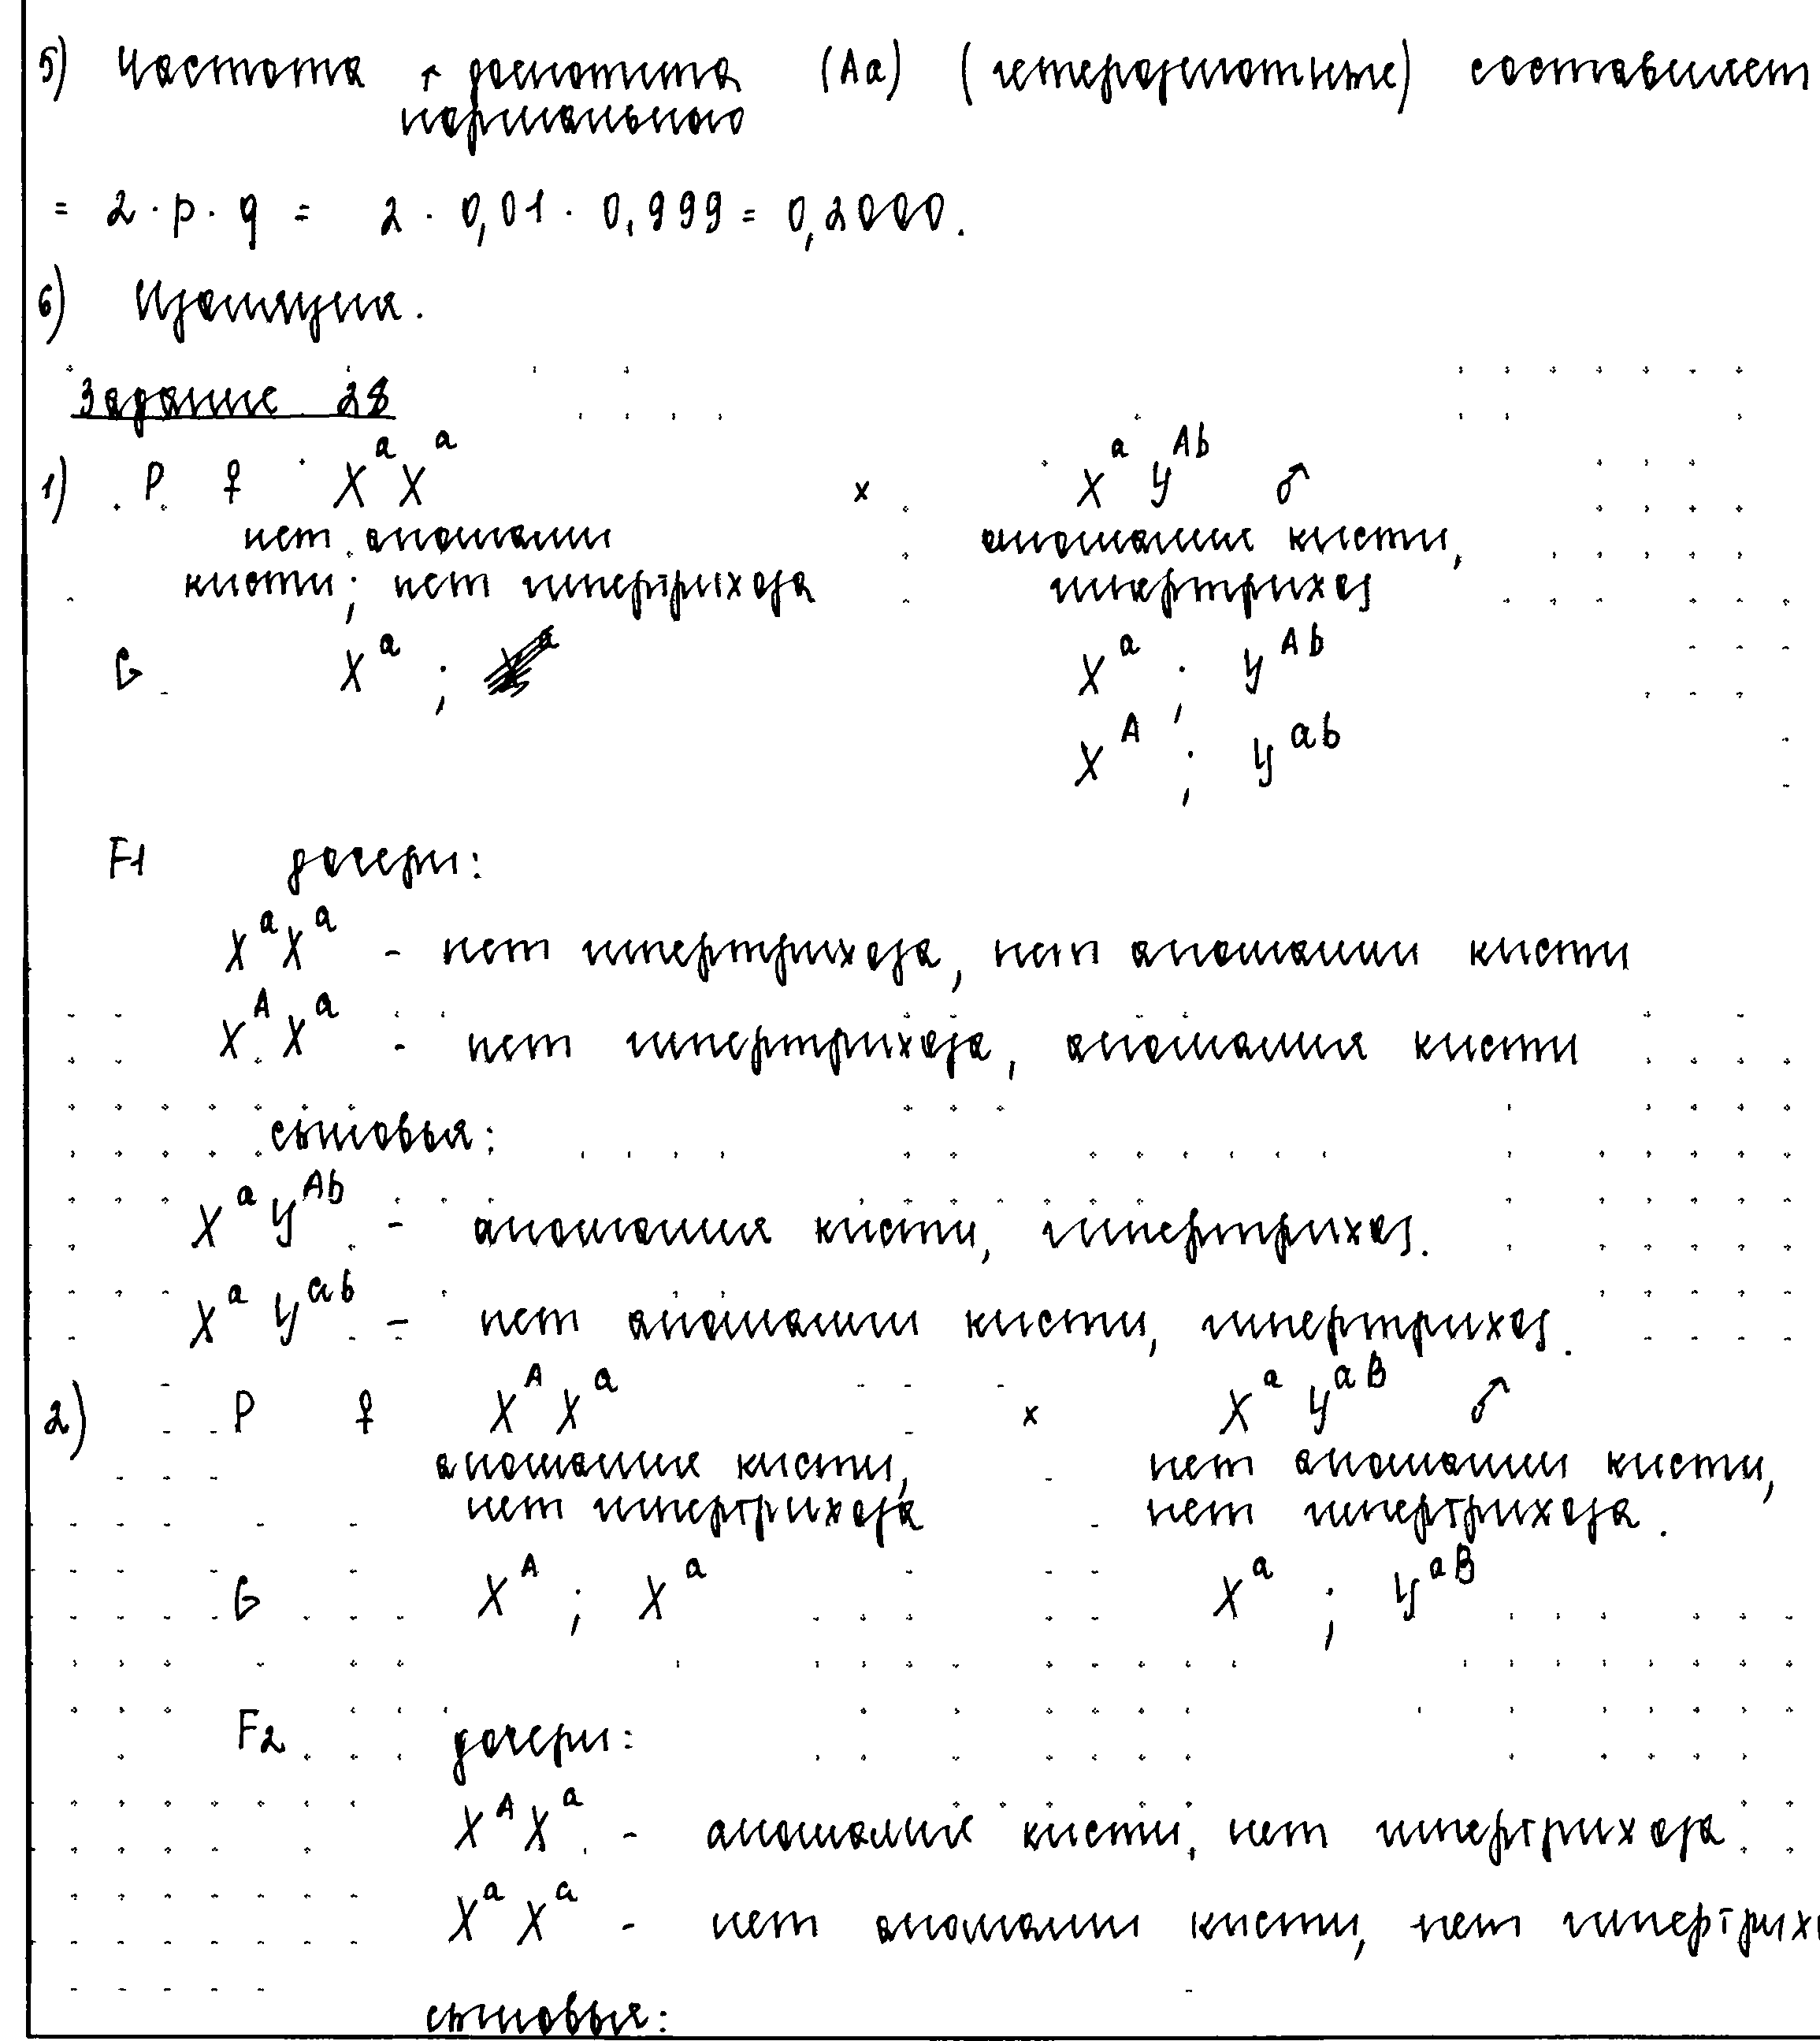 5) Частота ↑ фенотипа (Aa) (гетерозиготные) составляет
нормального
= 2 · p · q = 2 · 0,01 · 0,999 = 0,2000.
6) Изоляция.
Задание 28
1) P ♀ XᵃXᵃ x XᵃYᴬᵇ ♂
нет аномалии аномалия кисти,
кисти; нет гипертрихоза гипертрихоз
G Xᵃ ; Xᵃ ; Yᴬᵇ
Xᴬ ; Yᵃᵇ
F1 дочери:
XᵃXᵃ - нет гипертрихоза, нет аномалии кисти
XᴬXᵃ - нет гипертрихоза, аномалия кисти
сыновья:
XᵃYᴬᵇ - аномалия кисти, гипертрихоз.
XᵃYᵃᵇ - нет аномалии кисти, гипертрихоз.
2) P ♀ XᴬXᵃ x XᵃYᵃᴮ ♂
аномалия кисти, нет аномалии кисти,
нет гипертрихоза нет гипертрихоза.
G Xᴬ ; Xᵃ Xᵃ ; Yᵃᴮ
F2 дочери:
XᴬXᵃ - аномалия кисти, нет гипертрихоза.
XᵃXᵃ - нет аномалии кисти, нет гипертрих
сыновья: